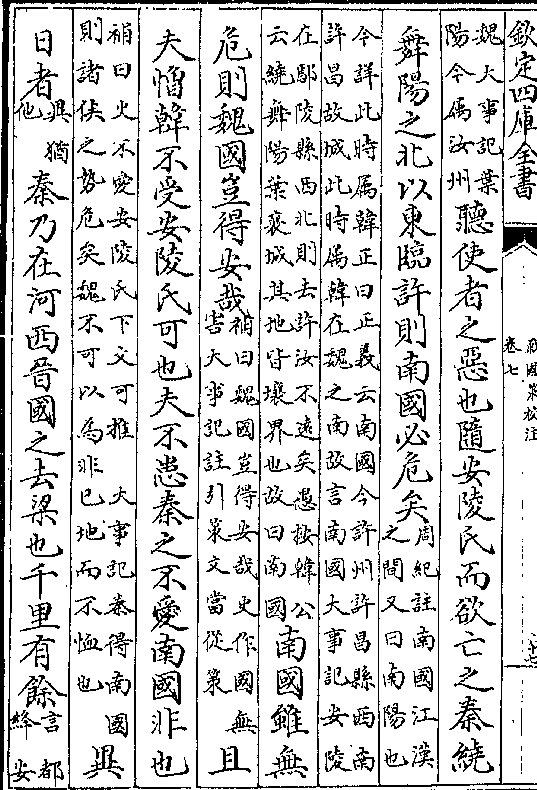 欽定四庫全書
戰國策校注
卷七
魏大事記葉
陽今屬汝州
聽使者之惡也隨安陵氏而欲亡之秦繞
舞陽之北以東臨許則南國必危矣
周紀註南國江漢
之間又曰南陽也
今詳此時屬韓正曰正義云南國今許州許昌縣西南
許昌故城此時屬韓在魏之南故言南國大事記安陵
在鄢陵縣西北則去許汝不遠矣愚按韓公
云繞舞陽葉襄城其地皆壤界也故曰南國
南國雖無
危則魏國豈得安哉
補曰魏國豈得安哉史作國無
害大事記註引策文當從策
且
夫憎韓不受安陵氏可也夫不患秦之不愛南國非也
補曰史不愛安陵氏下文可推 大事記秦得南國
則諸侯之勢危矣魏不可以為非己地而不恤也
異
日者
異猶
他
秦乃在河西晉國之去梁也千里有餘
言都
絳安